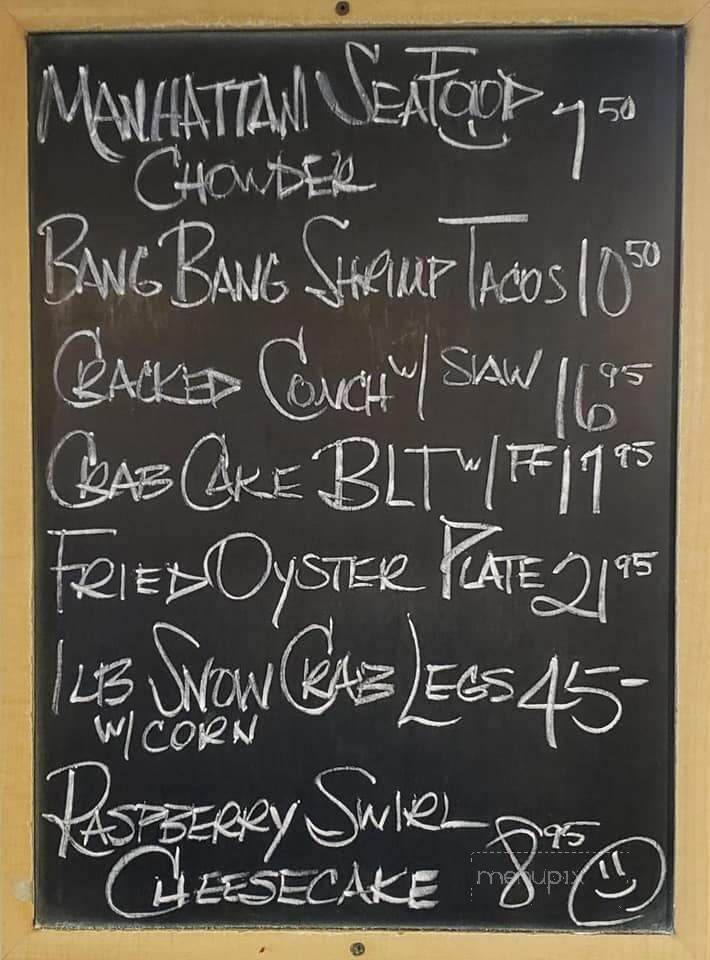 MANHATTAN SEAFOOD 7 50
CHOWDER
BANG BANG SHRIMP TACOS 10 50
CRACKED CONCH W/ SLAW 16 95
CRAB CAKE BLT W/ FF 17 95
FRIED OYSTER PLATE 21 95
1 LB SNOW CRAB LEGS 45-
W/ CORN
RASPBERRY SWIRL
CHEESECAKE 8 95
menupix